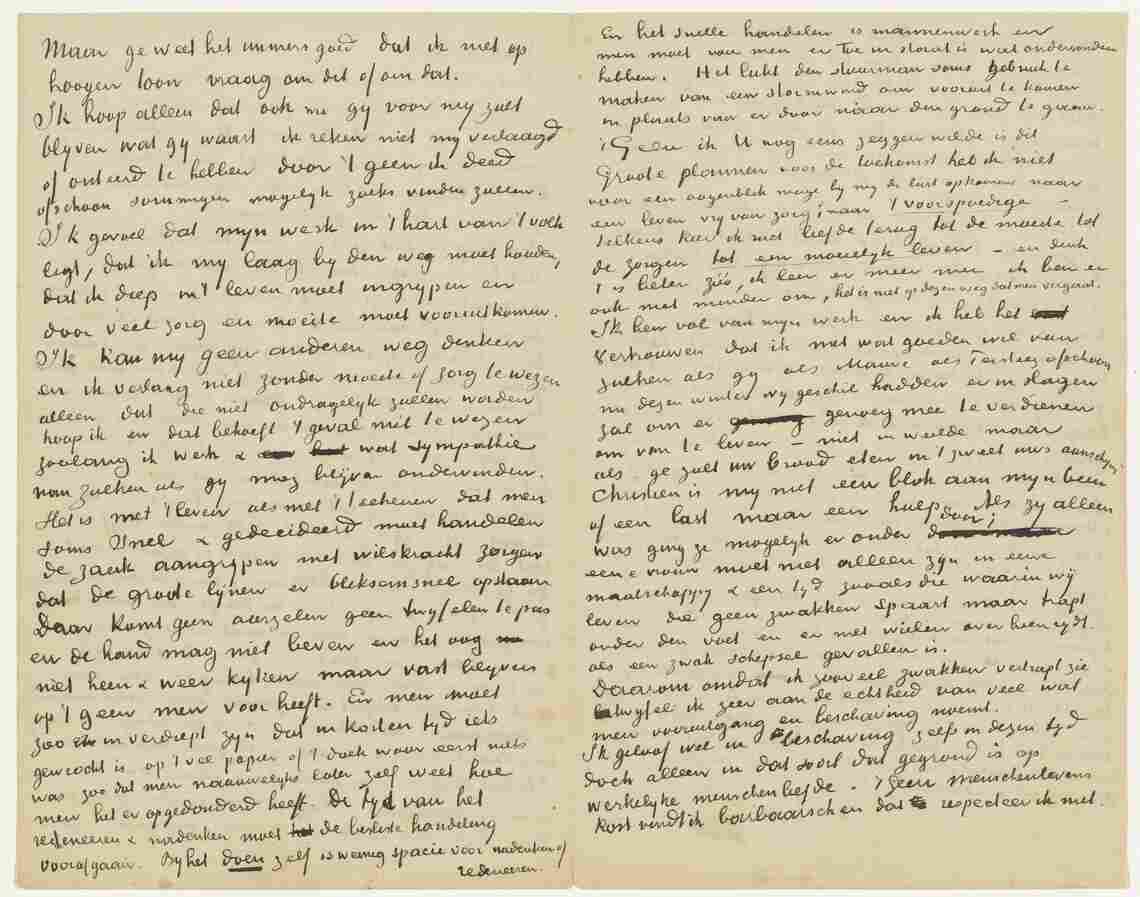 Maar ge weet het immers goed dat ik niet op
hoogen toon vraag om dit of om dat.
Ik hoop alleen dat ook nu gy voor my zult
blyven wat gy waart ik reken niet my verlaagd
of onteerd te hebben door 't geen ik deed
ofschoon sommigen mogelyk zoiets vinden zullen.
Ik gevoel dat myn werk in 't hart van 't volk
ligt, dat ik my laag by den weg moet houden,
dat ik diep in 't leven moet ingrypen en
door veel zorg en moeite moet vooruitkomen.
Ik kan my geen anderen weg denken
en ik verlang niet zonder moeite of zorg te wezen
alleen dat die niet ondragelyk zullen worden
hoop ik en dat behoeft 't geval niet te wezen
zoolang ik werk & wat sympathie
van zulken als gy mag blyven ondervinden.
Het is met 't leven als met 't teekenen dat men
soms snel & gedecideerd moet handelen
de zaak aangrypen met wilskracht zorgen
dat de groote lynen er bliksemsnel opstaan
Daar komt geen aarzelen geen twyfelen te pas
en de hand mag niet beven en het oog
niet heen & weer kyken maar vast blyven
op 't geen men voor heeft. En men moet
zoo er in verdiept zyn dat in korten tyd iets
gewrocht is op 't vel papier of 't doek waar eerst niets
was zoo dat men naauwelyks later zelf weet hoe
men het er opgedonderd heeft. De tyd van het
redeneeren & nadenken moet de besliste handeling
voorafgaan. By het doen zelf is weinig spacie voor nadenken of
redeneeren.
En het snelle handelen is mannenwerk en
men moet voor men er toe in staat is wat ondervonden
hebben. Het lukt den stuurman soms gebruik te
maken van een stormwind om vooruit te komen
in plaats van er door naar den grond te gaan.
't Geen ik U nog eens zeggen wilde is dit
Groote plannen voor de toekomst heb ik niet
voor een oogenblik moge by my de lust opkomen naar
een leven vry van zorg, naar 't voorspoedige –
telkens keer ik met liefde terug tot de moeite tot
de zorgen tot een moeielyk leven – en denk
't is beter zóó, ik leer er meer mee ik ben er
ook niet minder om, het is niet op dezen weg dat men vergaat.
Ik ben vol van myn werk en ik heb het
vertrouwen dat ik met wat goeden wil van
zulken als gy als Mauve als Tersteeg ofschoon
nu dezen winter wy geschil hadden er in slagen
zal om er genoeg mee te verdienen
om van te leven – niet in weelde maar
als ge zult uw brood eten in 't zweet uws aanschyns.
Christien is my niet een blok aan myn been
of een last maar een hulp. Als zy alleen
was ging ze mogelyk er onder door;
eene vrouw moet niet alleen zyn in eene
maatschappy & een tyd zooals die waarin wy
leven die geen zwakken spaart maar trapt
onder den voet en er met wielen over heen rydt
als een zwak schepsel gevallen is.
Daarom omdat ik zooveel zwakken vertrapt zie
twyfel ik zeer aan de echtheid van veel wat
men vooruitgang en beschaving noemt.
Ik geloof wel in beschaving zelfs in dezen tyd
doch alleen in dat soort dat gegrond is op
werkelyke menschenliefde. 't Geen menschenlevens
kost vindt ik barbaarsch en dat respecteer ik niet.